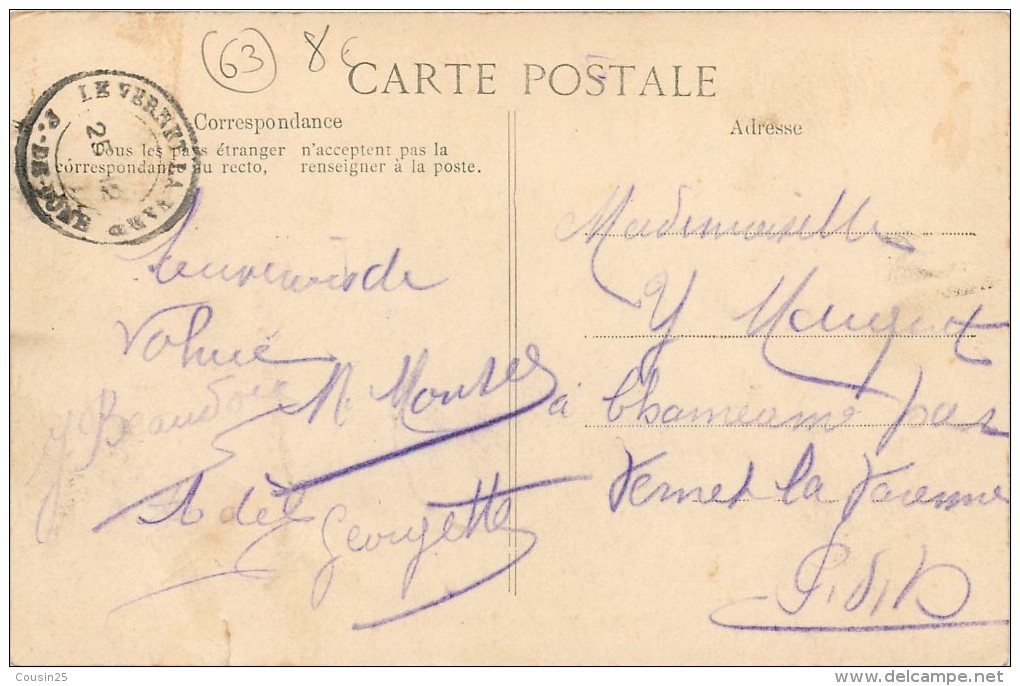 (63) 8€
CARTE POSTALE
LE VERNET-LA-VAR
P.-DE-DOME
25
Correspondance
Tous les pays étranger n'acceptent pas la
correspondance au recto, renseigner à la poste.
Adresse
Souvenirs de
Volmé
M
J Beaudoir
Adèl
Georgette
Mademoiselle
Y
à Chaméane par
Vernet la Varenne
P.d.D
Cousin25
www.delcampe.net